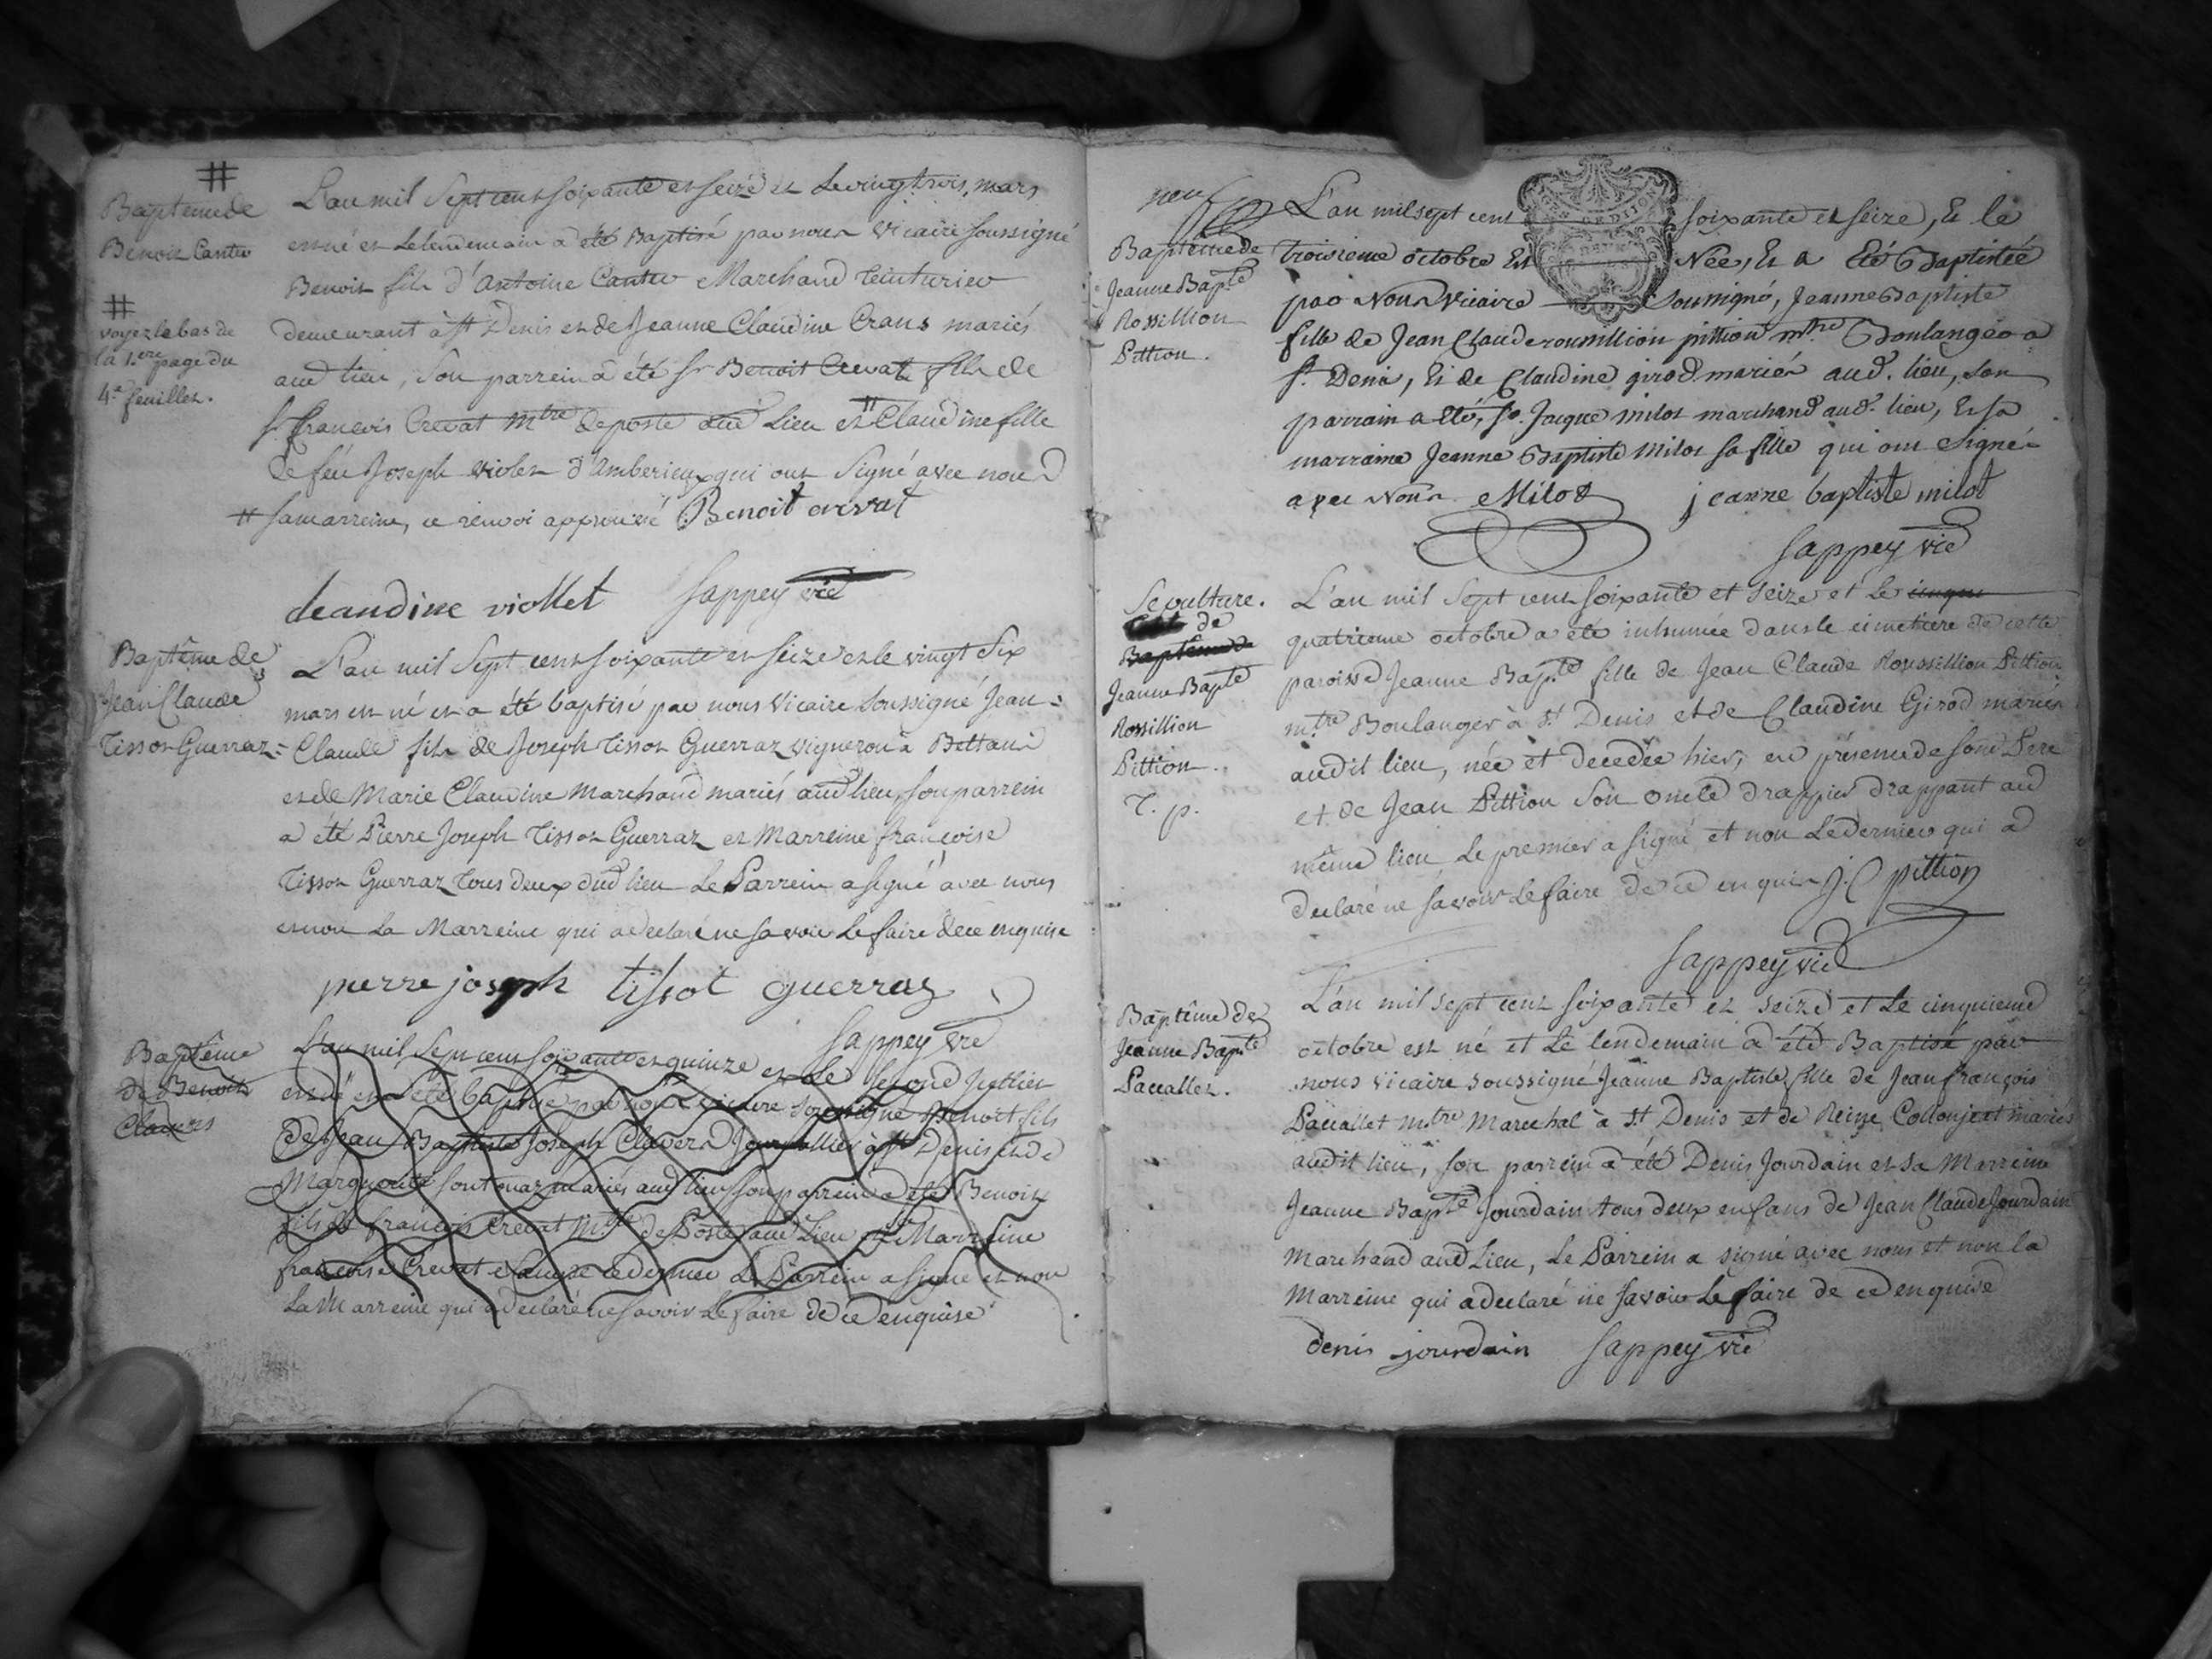 #
Baptême de
Benoit Canter
#
voyez le bas de
la 1.ere page du
4.e feuillet.
L'an mil Sept cent soixante et seize et le vingt trois mars
est né et le lendemain a été Baptisé par nous Vicaire soussigné
Benoit fils d'Antoine Canter Marchand teinturier
demeurant à St Denis et de Jeanne Claudine Crans mariés
aud lieu, son parrein a été Sr Benoit Crevat fils de
Sr françois Crevat Mtre de poste dud Lieu et # Claudine fille
de feu Joseph Violet d'Amberieux qui ont Signé avec nous
# sa marreine, ce renvoi approuvé Benoit crevat
cleaudine viollet Sappey vic
Baptême de
Jean Claude
Tissot Guerraz
L'an mil Sept cent soixante et seize et le vingt Six
mars est né et a été baptisé par nous Vicaire Soussigné Jean =
= Claude fils de Joseph Tissot Guerraz Vigneron à Bettant
et de Marie Claudine Marchand mariés aud lieu, son parrein
a été Pierre Joseph Tissot Guerraz et Marreine françoise
Tissot Guerraz Tous deux dud lieu Le Parrein a signé avec nous
et non La Marreine qui a declaré ne savoir Le faire de ce enquise
pierre joseph tissot guerraz
Sappey vic
Baptême
de Benoit
L'an mil Sept cent soixante et quinze et Le Second Juillet
est né et a été baptisé par nous vicaire soussigné Benoit fils
de Jean Baptiste Joseph à St Denis et de
Marguerite mariés aud lieu son parrein a été Benoit
fils de françois Crevat Mtre de Poste aud Lieu et Marreine
françoise Crevat Le Parrein a signé et non
La Marreine qui a declaré ne savoir Le faire de ce enquise
neuf
Baptême de
Jeanne Bapte
Rossillion
Pittion.
GEN. DE DIJON
L'an mil sept cent soixante et seize, Et le
troisieme octobre Est Née, Et a Eté Baptistée
par Nous Viciaire soussigné, Jeanne Baptiste
fille de Jean Claude rousillion pittion mtre Boulanger a
St Denis, Et de Claudine girod mariés aud. lieu, son
parrain a Eté, Sr. Jaque milot marchand aud. lieu, Et sa
marraine Jeanne Baptiste milot sa fille qui ont Signés
avec Nous Milot jeanne baptiste milot
Sappey vic
Sepulture.
de
Baptême de
Jeanne Bapte
Rossillion
Pittion.
T. p.
L'an mil Sept cent soixante et seize et Le cinqu
quatrieme octobre a été inhumée dans le cimetiere de cette
paroisse Jeanne Bapte fille de Jean Claude Roussillion Pittion
mtre Boulanger à St Denis et de Claudine Girod mariés
audit lieu, née et decedée hier, en présence de sond Pere
et de Jean Pittion Son oncle drappier drappant aud
même lieu Le premier a signé et non Le dernier qui a
declaré ne savoir Le faire de ce enquis J. C pittion
Sappey vic
Baptême de
Jeanne Bapte
Paccallet.
L'an mil Sept cent soixante et seize et Le cinquieme
octobre est né et Le lendemain a été Baptisé par
nous vicaire soussigné Jeanne Baptiste fille de Jean françois
Paccallet mtre Marechal à St Denis et de Reine Collonjeat mariés
audit lieu, son parrein a été Denis Jourdain et sa Marreine
Jeanne Bapte Jourdain tous deux enfans de Jean Claude Jourdain
Marchand aud Lieu, Le Parrein a signé avec nous et non la
Marreine qui a declaré ne savoir Le faire de ce enquise
denis jourdain Sappey vic